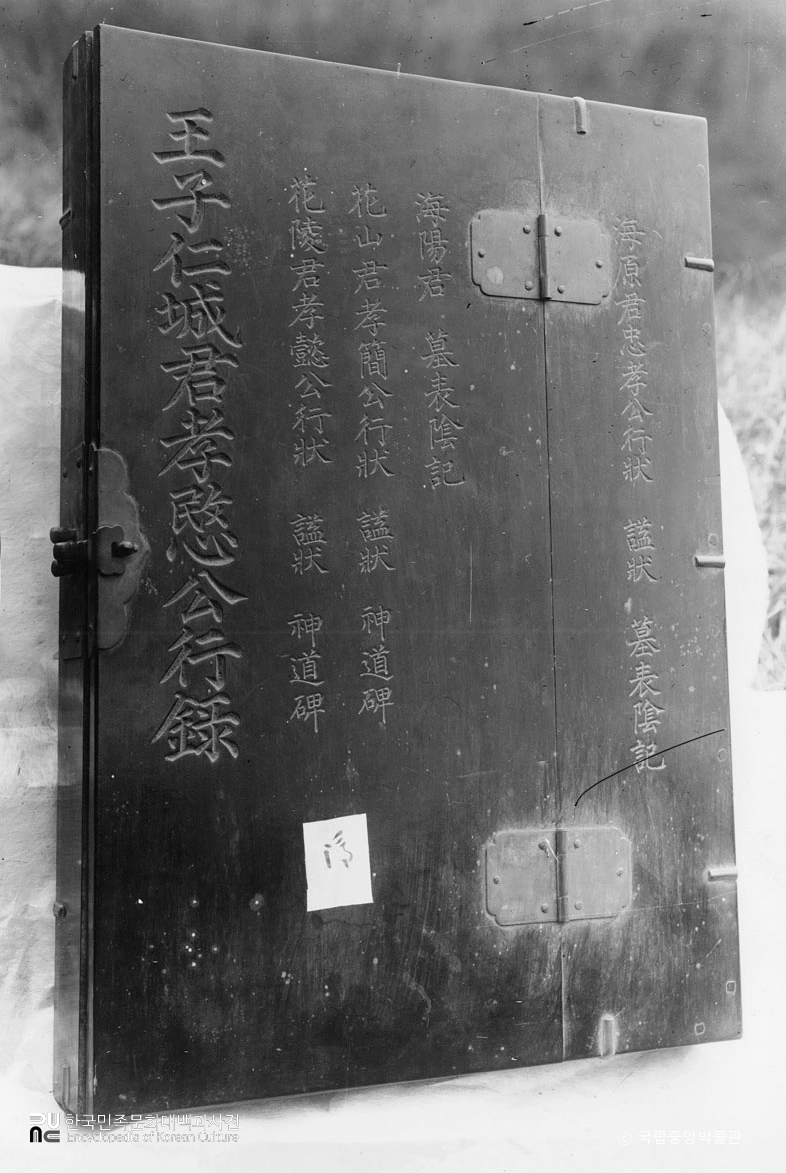 海原君忠孝公行狀 諡狀 墓表陰記
海陽君 墓表陰記
花山君孝簡公行狀 諡狀 神道碑
花陵君孝懿公行狀 諡狀 神道碑
王子仁城君孝愍公行錄
한국민족문화대백과사전
Encyclopedia of Korean Culture
© 국립중앙박물관